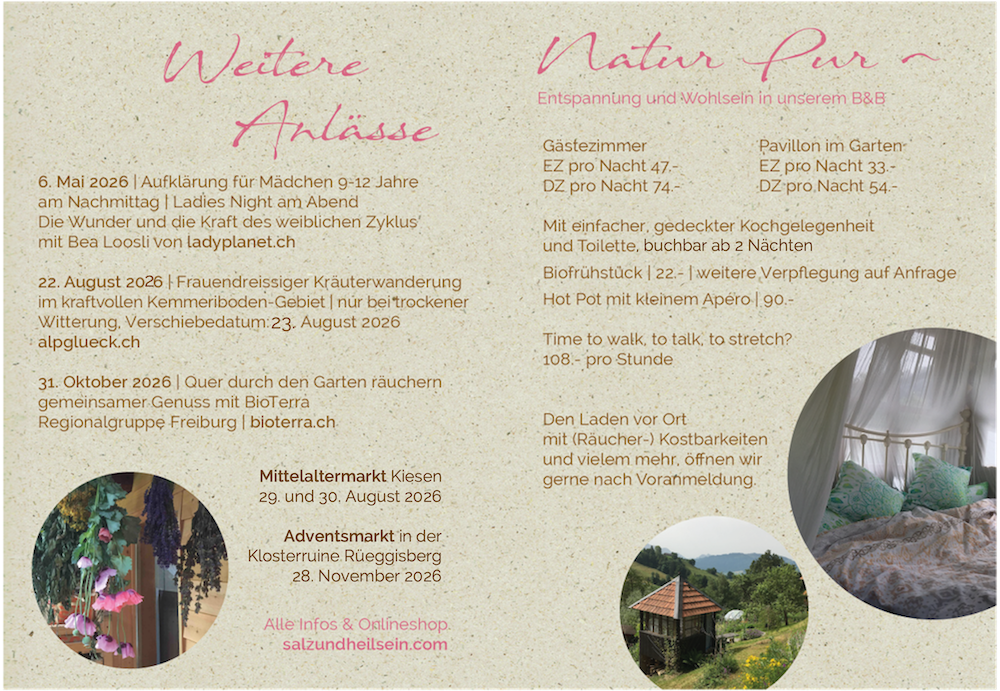 Weitere
Anlässe
6. Mai 2026 | Aufklärung für Mädchen 9-12 Jahre
am Nachmittag | Ladies Night am Abend
Die Wunder und die Kraft des weiblichen Zyklus
mit Bea Loosli von ladyplanet.ch
22. August 2026 | Frauendreissiger Kräuterwanderung
im kraftvollen Kemmeriboden-Gebiet | nur bei trockener
Witterung, Verschiebedatum: 23. August 2026
alpglueck.ch
31. Oktober 2026 | Quer durch den Garten räuchern
gemeinsamer Genuss mit BioTerra
Regionalgruppe Freiburg | bioterra.ch
Mittelaltermarkt Kiesen
29. und 30. August 2026
Adventsmarkt in der
Klosterruine Rüeggisberg
28. November 2026
Alle Infos & Onlineshop.
salzundheilsein.com
Natur Pur ~
Entspannung und Wohlsein in unserem B&B
Gästezimmer
EZ pro Nacht 47.-
DZ pro Nacht 74.-
Pavillon im Garten
EZ pro Nacht 33.-
DZ pro Nacht 54.-
Mit einfacher, gedeckter Kochgelegenheit
und Toilette, buchbar ab 2 Nächten
Biofrühstück | 22.- | weitere Verpflegung auf Anfrage
Hot Pot mit kleinem Apéro | 90.-
Time to walk, to talk, to stretch?
108.- pro Stunde
Den Laden vor Ort
mit (Räucher-) Kostbarkeiten
und vielem mehr, öffnen wir
gerne nach Voranmeldung.